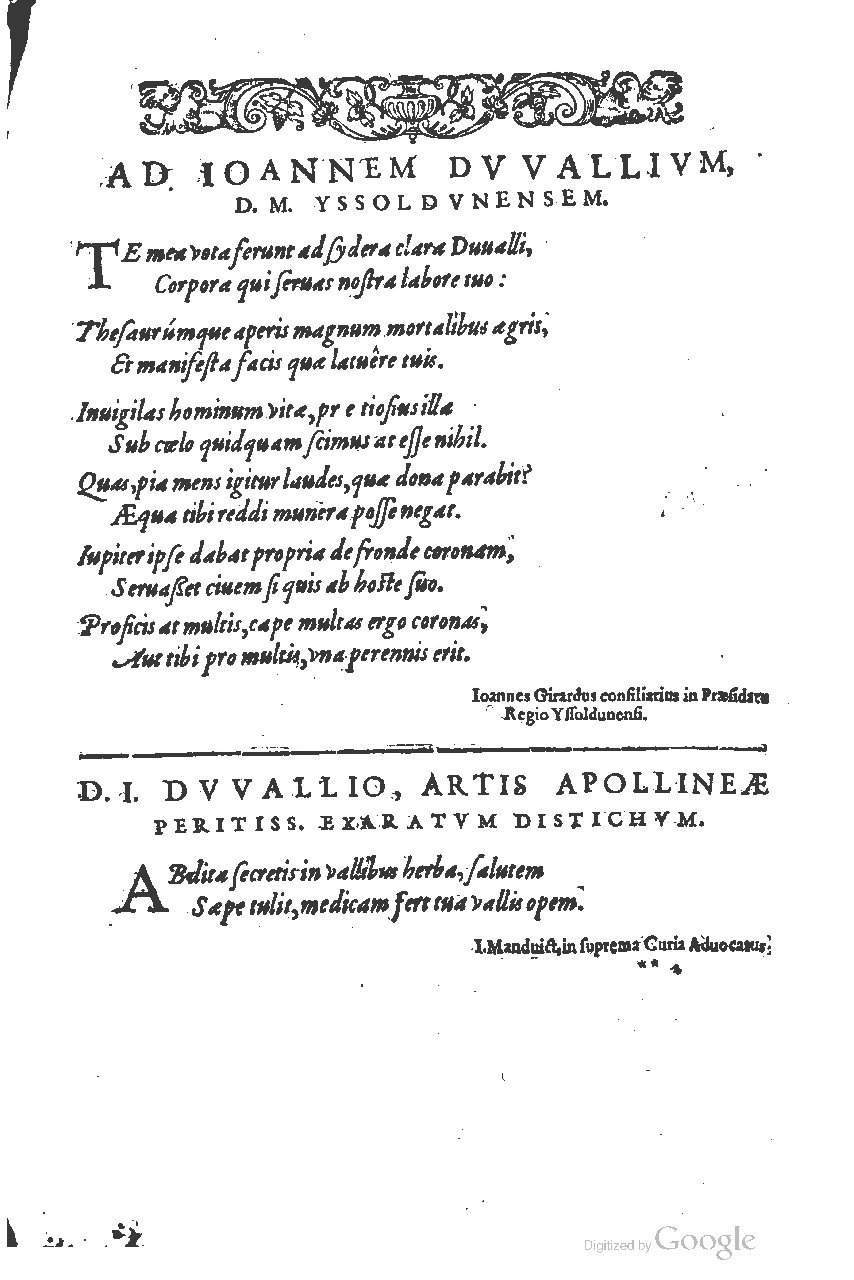 AD IOANNEM DVVALLIVM,
D. M. YSSOLDVNENSEM.
TE mea vota ferunt ad ſydera clara Duualli,
Corpora qui ſeruas noſtra labore tuo :
Theſaurúmque aperis magnum mortalibus ægris,
Et manifeſta facis quæ latuêre tuis.
Inuigilas hominum vitæ, pretioſius illa
Sub cœlo quidquam ſcimus at eſſe nihil.
Quas, pia mens igitur laudes, quæ dona parabit?
Æqua tibi reddi munera poſſe negat.
Iupiter ipſe dabat propria de fronde coronam,
Seruaſſet ciuem ſi quis ab hoſte ſuo.
Proficis at multis, cape multas ergo coronas,
Aut tibi pro multis, vna perennis erit.
Ioannes Girardus conſiliarius in Præſidatu
Regio Yſſoldunenſi.
D. I. DVVALLIO, ARTIS APOLLINEÆ
PERITISS. EXARATVM DISTICHVM.
ABdita ſecretis in vallibus herba, ſalutem
Sæpe tulit, medicam fert tua vallis opem.
I. Manduict, in ſuprema Curia Aduocatus.
**
Digitized by Google